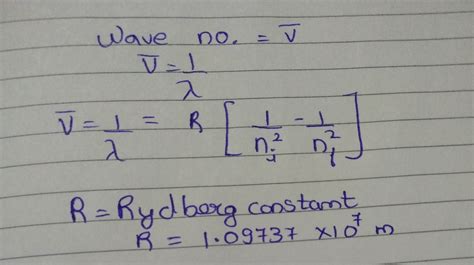 Wave no. = v̅
v̅ = 1/λ
v̅ = 1/λ = R [1/nᵢ² - 1/n_f²]
R = Rydberg constant
R = 1.09737 × 10⁷ m